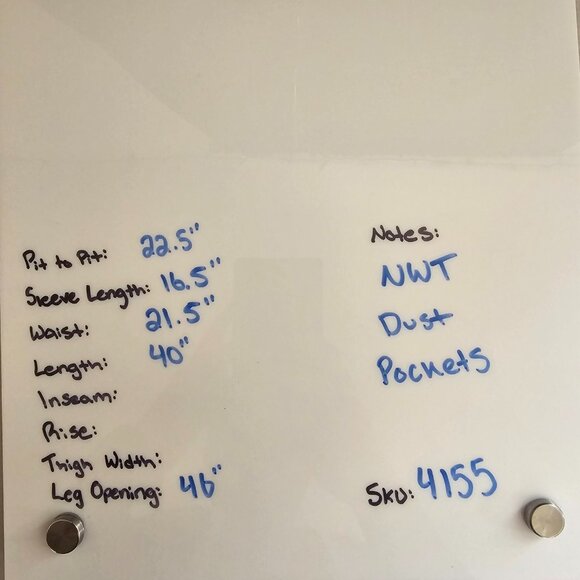 Pit to Pit: 22.5"
Sleeve Length: 16.5"
Waist: 21.5"
Length: 40"
Inseam:
Rise:
Thigh Width:
Leg Opening: 46"
Notes:
NWT
Dust
Pockets
Sku: 4155